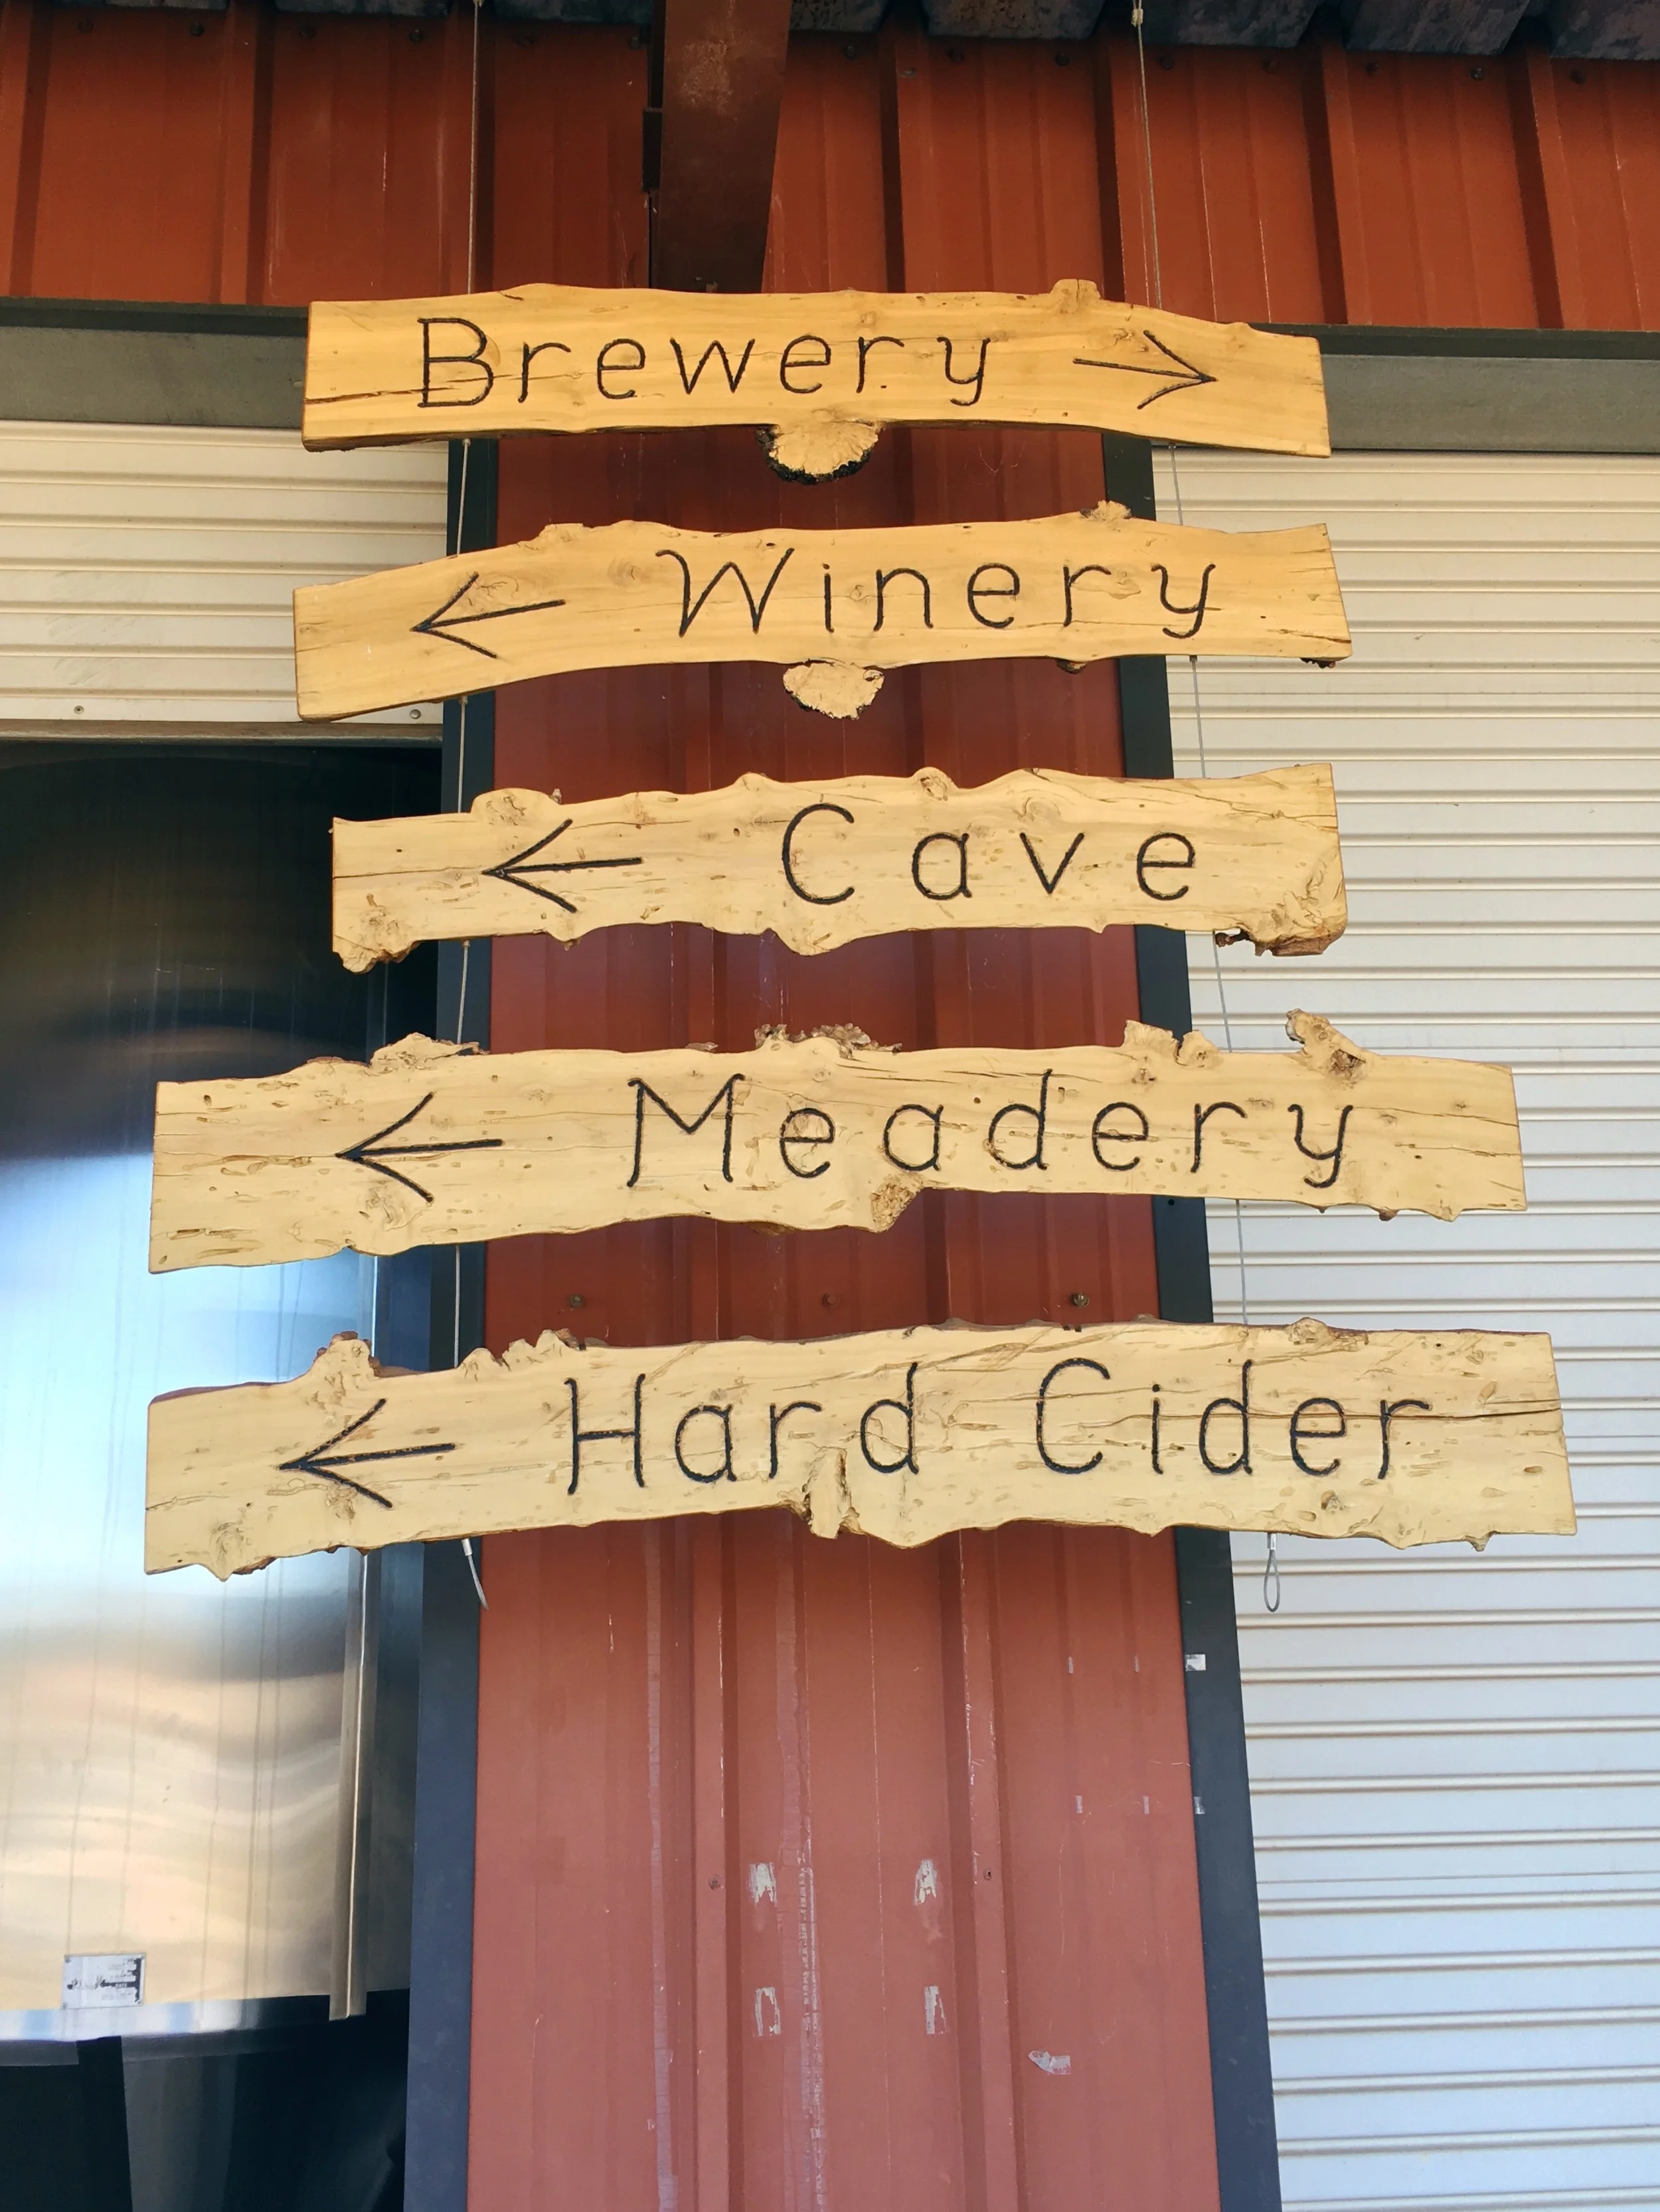 Brewery →
← Winery
← Cave
← Meadery
← Hard Cider